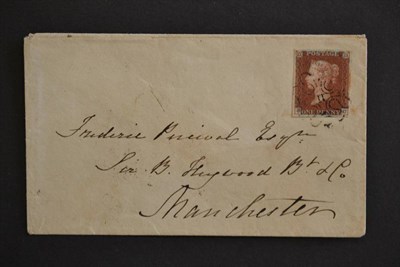 POSTAGE
ONE PENNY
Frederic Percival Esqr
Sir B. Heywood Bt & Co
Manchester